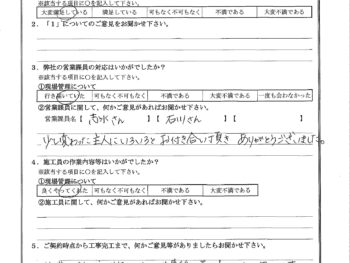 ※該当する項目に○を記入して下さい。
大変満足している 満足している 可もなく不可もなく 不満である 大変不満である
2.「1」についてのご意見をお聞かせ下さい。
3.弊社の営業課員の対応はいかがでしたか?
※該当する項目に○を記入して下さい。
①現場管理について
行き届いていた 可もなく不可もなく 不満である 大変不満である 一度も会わなかった
②営業課員に関して、何かご意見があればお聞かせ下さい。
営業課員名【 さん 】【 石川さん 】
少し変わった主人にいろいろとお付き合い頂き ありがとうございました。
4.施工員の作業内容等はいかがでしたか?
※該当する項目に○を記入して下さい。
①現場管理について
良くやってくれた 可もなく不可もなく 不満である 大変不満である
②施工員に関して、何かご意見があればお聞かせ下さい。
5.ご契約時点から工事完工まで、何かご意見等がありましたらお聞かせ下さい。